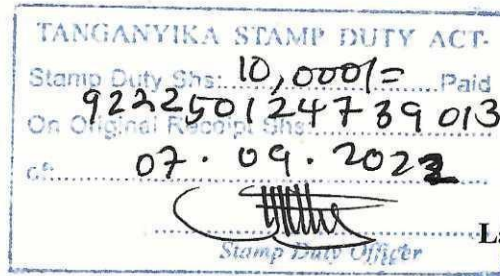 TANGANYIKA STAMP DUTY ACT-
Stamp Duty Shs: 10,000/= Paid
922250124739013
On Original Receipt Shs
of: 07.09.2022
Stamp Duty Officer